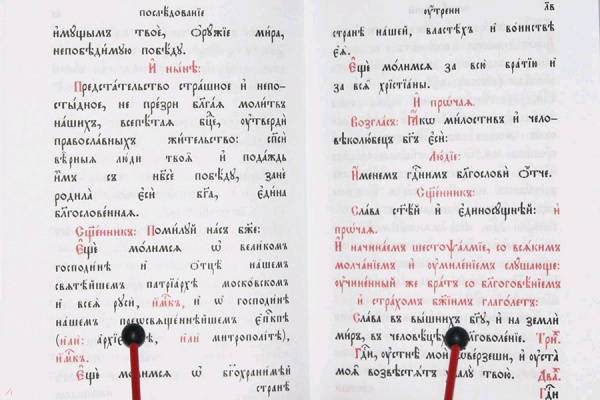 послѣ́дованїе
и҆мꙋ́щымъ твоѐ, ѻ҆рꙋ́жїе ми́ра,
непобѣди́мꙋю побѣ́дꙋ.
И҆ ны́нѣ:
Предста́тельство стра́шное и҆ непо-
сты́дное, не пре́зри бл҃га́я моли́твъ
на́шихъ, всепѣ́таѧ бц҃е, ᲂу҆твердѝ
правосла́вныхъ жи́тельство: сп҃сѝ
вѣ̑рныѧ лю́ди твоѧ̑ и҆ пода́ждь
и҆̀мъ съ нб҃сѐ побѣ́дꙋ, занѐ
родила̀ є҆сѝ бг҃а, є҆ди́на
бл҃гослове́ннаѧ.
Сщ҃е́нникъ: Поми́лꙋй на́съ бж҃е:
Є҆щѐ мо́лимсѧ ѡ҆ вели́комъ
господи́нѣ и҆ ѻ҆тцѣ̀ на́шемъ
свѧтѣ́йшемъ патрїа́рхѣ моско́вскомъ
и҆ всеѧ̀ рꙋсѝ, и҆́м҃къ, и҆ ѡ҆ господи́нѣ
на́шемъ преѡсвѧще́ннѣйшемъ є҆пⷭ҇кпѣ
(и҆лѝ: и҆лѝ митрополі́тѣ),
и҆́м҃къ.
Є҆щѐ мо́лимсѧ ѡ҆ бг҃охрани́мѣй
странѣ̀
ᲂу҆́трени л҃в
странѣ̀ на́шей, властѣ́хъ и҆ во́инствѣ
є҆ѧ̀.
Є҆щѐ мо́лимсѧ за всю̀ бра́тїю и҆
за всѧ̑ хрⷭ҇тїа́ны.
И҆ прѡ́чаѧ.
Возгла́съ: Ꙗ҆́кѡ ми́лостивъ и҆ чело-
вѣколю́бецъ бг҃ъ є҆сѝ:
Лю́дїе:
И҆́менемъ гдⷭ҇нимъ благословѝ ѻ҆́тче.
Сщ҃е́нникъ:
Сла́ва ст҃ѣ́й и҆ є҆диносꙋ́щнѣй: и҆
прѡ́чаѧ.
И҆ начина́емъ шестоѱа́лмїе, со всѧ́кимъ
молча́нїемъ и҆ ᲂу҆миле́нїемъ слꙋ́шающе:
ᲂу҆чине́нный же бра́тъ со бл҃гоговѣ́нїемъ
и҆ стра́хомъ бж҃їимъ глаго́летъ:
Сла́ва въ вы́шнихъ бг҃ꙋ, и҆ на землѝ
ми́ръ, въ человѣ́цѣхъ Три́ж.
Гдⷭ҇и, ᲂу҆стнѣ̀ моѝ и҆ ᲂу҆ста̀
моѧ̑ возвѣстѧ́тъ хвалꙋ̀ твою̀. Два́ж.
Гдⷭ҇и